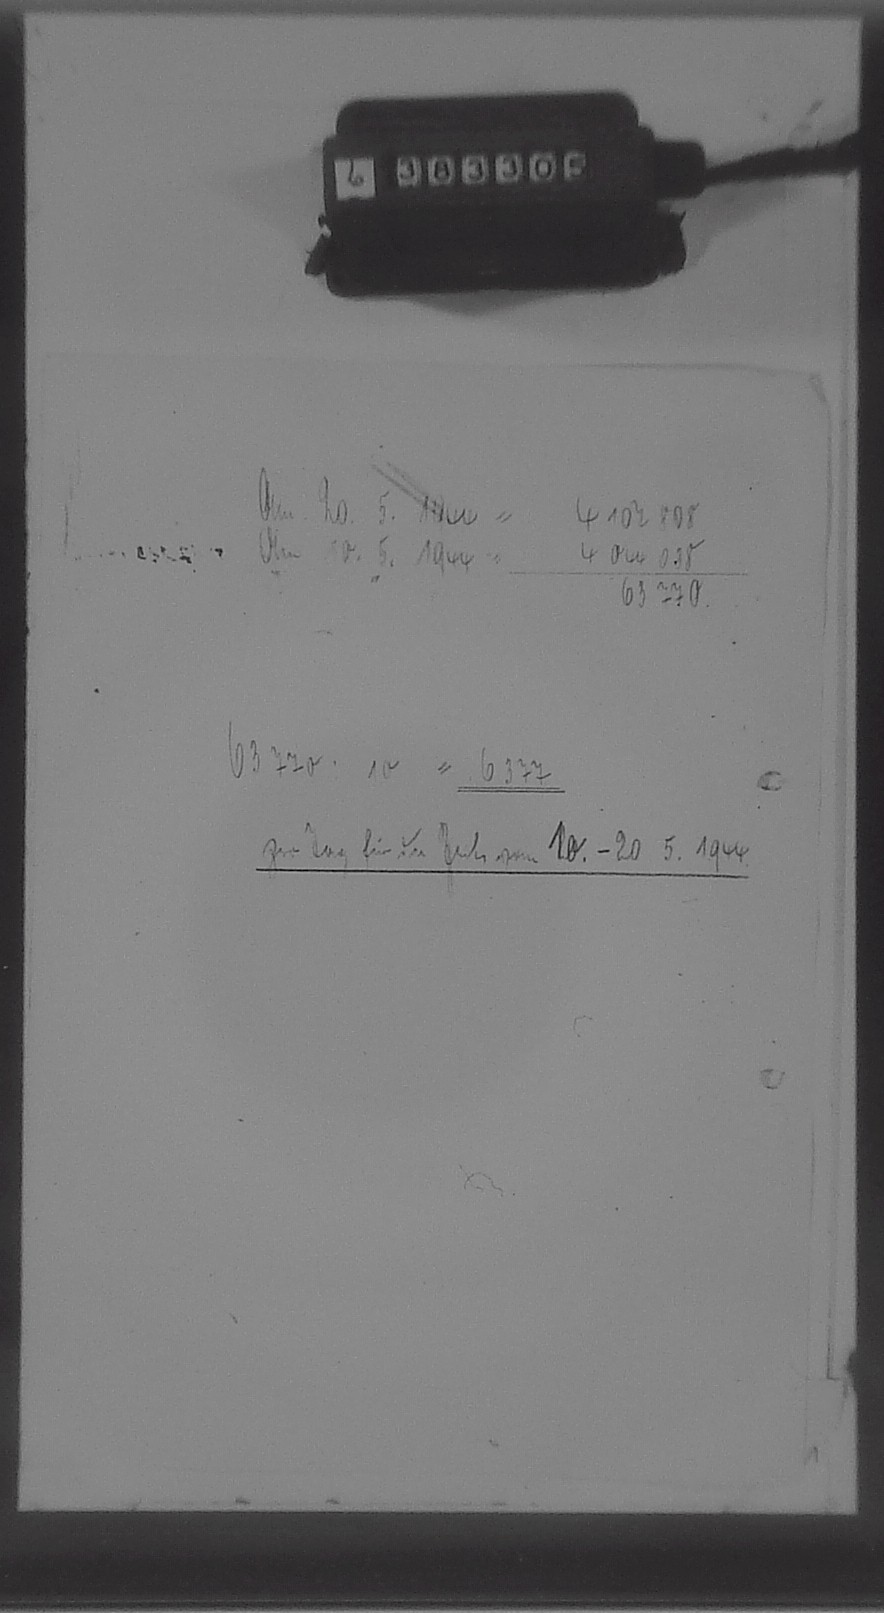 6 38330
Am 20. 5. 1944 = 4 107 808
Am 10. 5. 1944 = 4 044 038
63 770.
63 770 : 10 = 6377
pro Tag für die Zeit vom 10. - 20 5. 1944